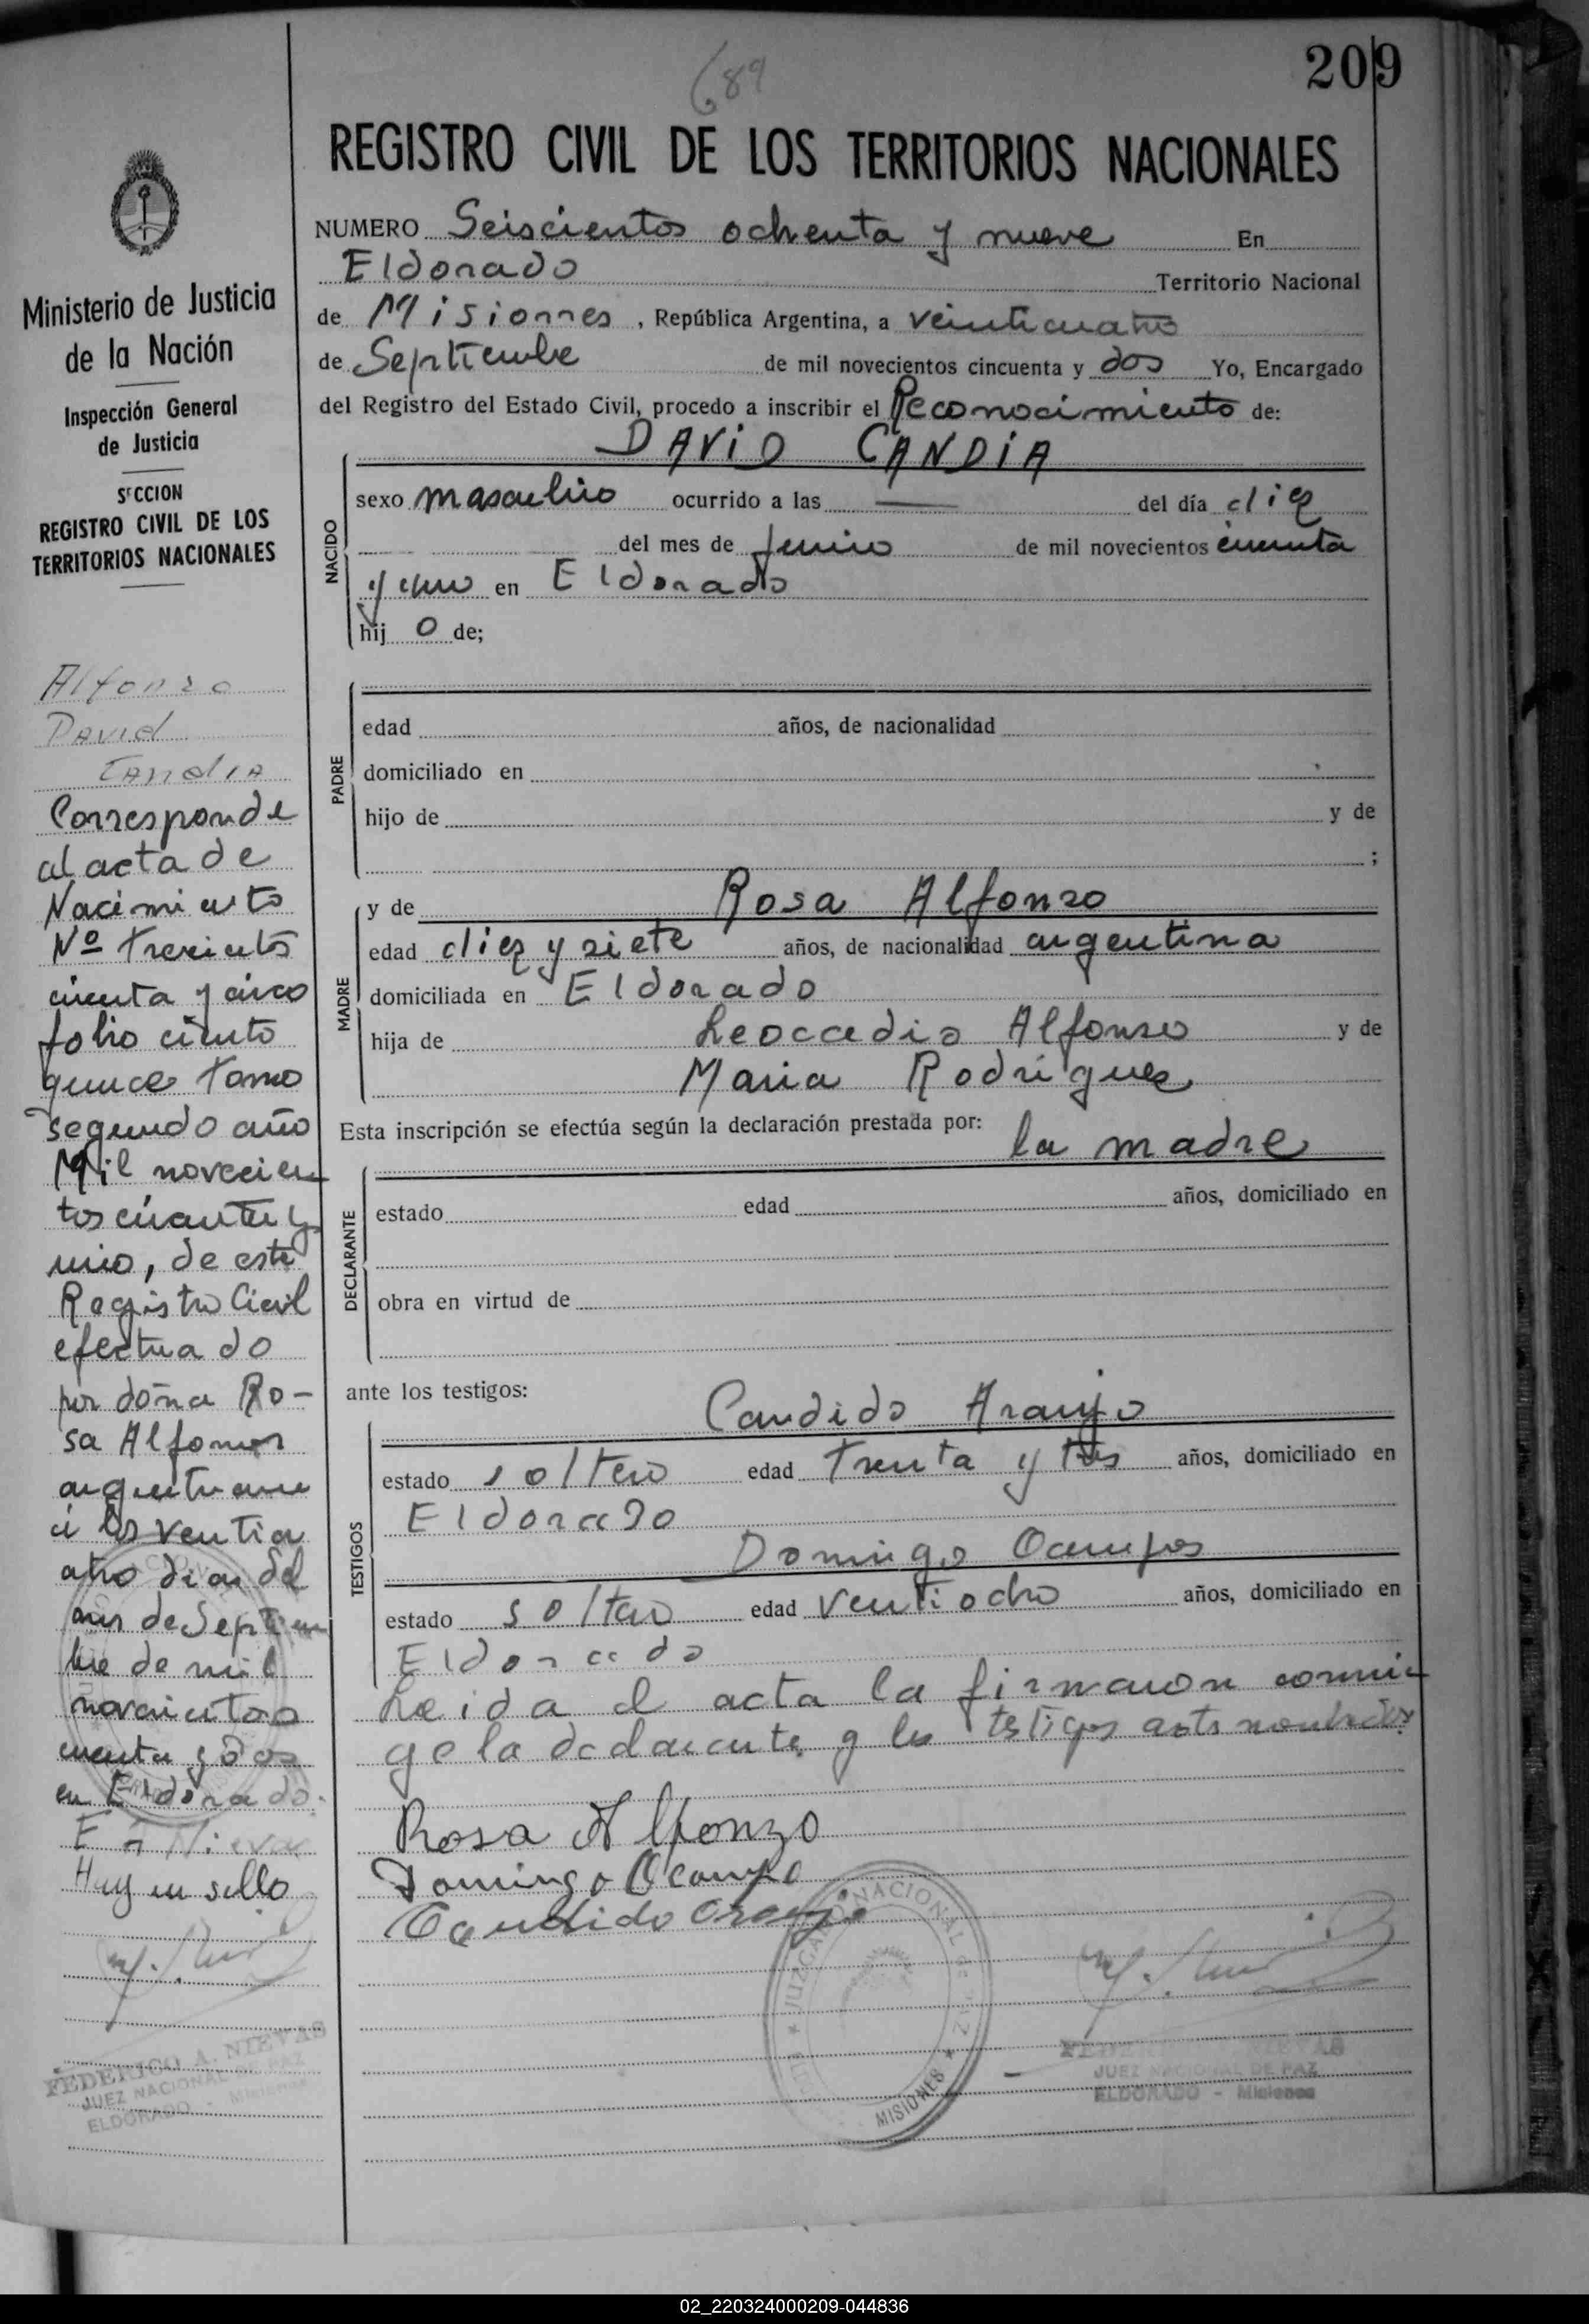 209
689
REGISTRO CIVIL DE LOS TERRITORIOS NACIONALES
NUMERO Seiscientos ochenta y nueve En
Eldorado Territorio Nacional
de Misiones, República Argentina, a veinticuatro
de Septiembre de mil novecientos cincuenta y dos Yo, Encargado
del Registro del Estado Civil, procedo a inscribir el Reconocimiento de:
DAVID CANDIA
NACIDO
sexo masculino ocurrido a las — del día diez
del mes de Junio de mil novecientos cincuenta
y uno en Eldorado
hij o de;
PADRE
edad años, de nacionalidad
domiciliado en
hijo de y de
;
MADRE
y de Rosa Alfonzo
edad diez y siete años, de nacionalidad argentina
domiciliada en Eldorado
hija de Leoccadio Alfonso y de
Maria Rodríguez
Esta inscripción se efectúa según la declaración prestada por: la madre
DECLARANTE
estado edad años, domiciliado en
obra en virtud de
ante los testigos:
TESTIGOS
Candido Araujo
estado soltero edad Trenta y tres años, domiciliado en
Eldorado
Domingo Ocampos
estado soltero edad ventiocho años, domiciliado en
Eldorado
Leida el acta la firmaron conmi
go la declarante y los testigos ante nombrados
Rosa Alfonzo
Domingo Ocampo
Candido Araujo
JUZGADO NACIONAL DE PAZ
MISIONES
JUEZ NACIONAL DE PAZ
ELDORADO - Misiones
Ministerio de Justicia
de la Nación
Inspección General
de Justicia
SECCION
REGISTRO CIVIL DE LOS
TERRITORIOS NACIONALES
Alfonzo
David
Candia
Corresponde
al acta de
Nacimiento
Nº Trecientos
cincuenta y cinco
folio ciento
quince tomo
segundo año
Mil novecien
tos cincuenta y
uno, de este
Registro Civil
efectuado
por doña Ro-
sa Alfonso
argentina
a los venticu
atro dias del
mes de Septiem
bre de mil
novecientos
cincuenta y dos
en Eldorado.
Hay un sello
FEDERICO A. NIEVAS
JUEZ NACIONAL DE PAZ
ELDORADO - Misiones
02_220324000209-044836